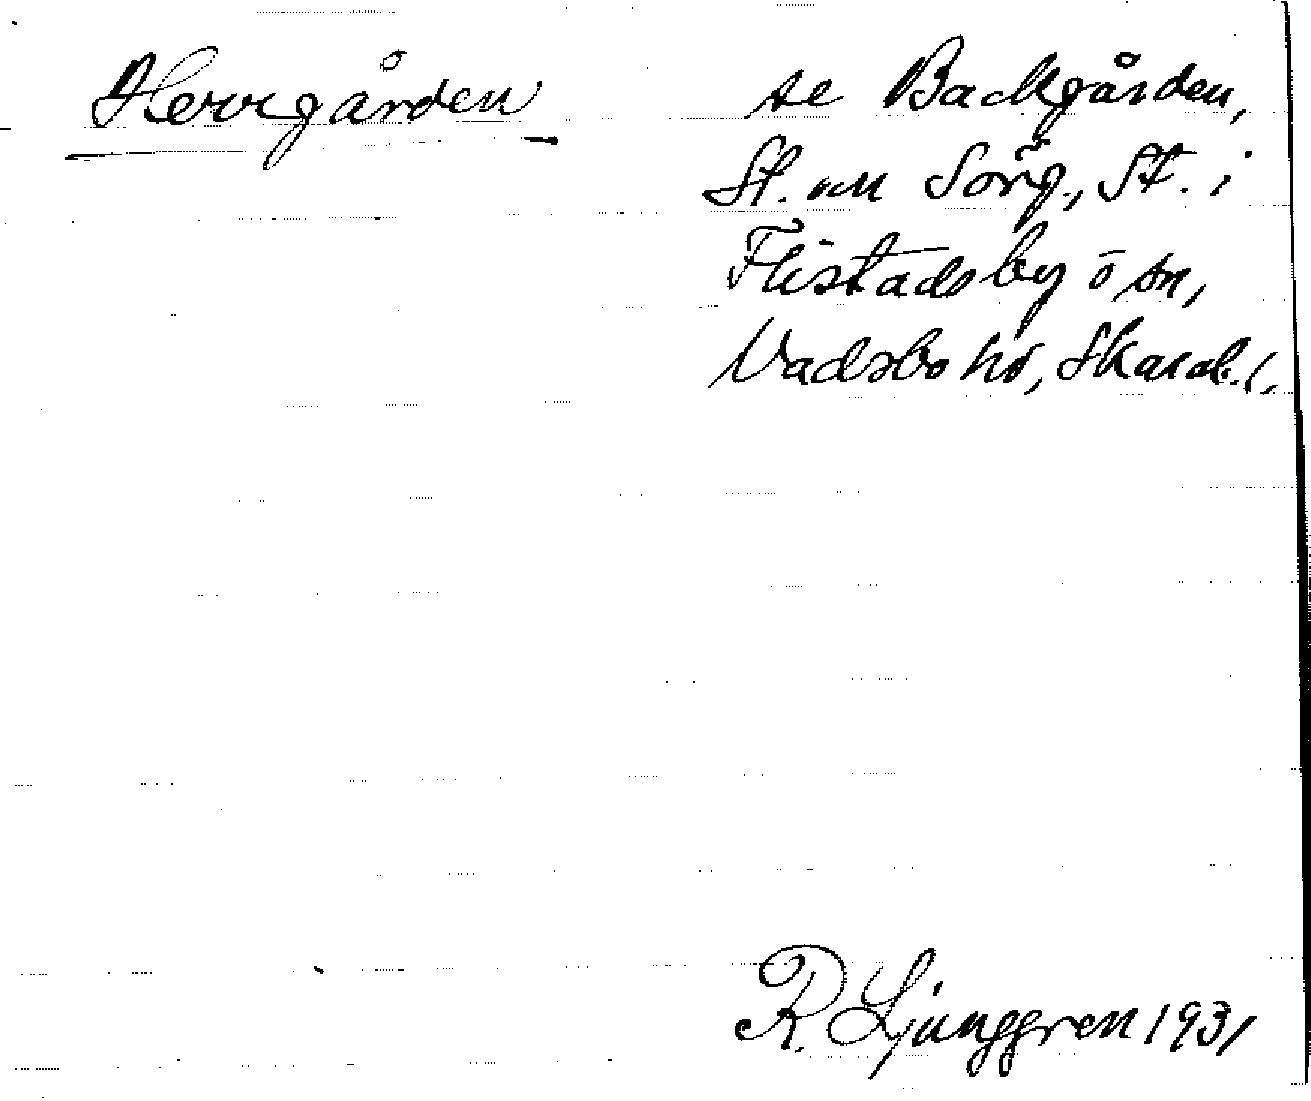 Herrgården
se Backgården,
St. och Sörg., St. i
Flistads by o sn,
Vadsbo hd, Skarab. l.
R. Ljunggren 1931